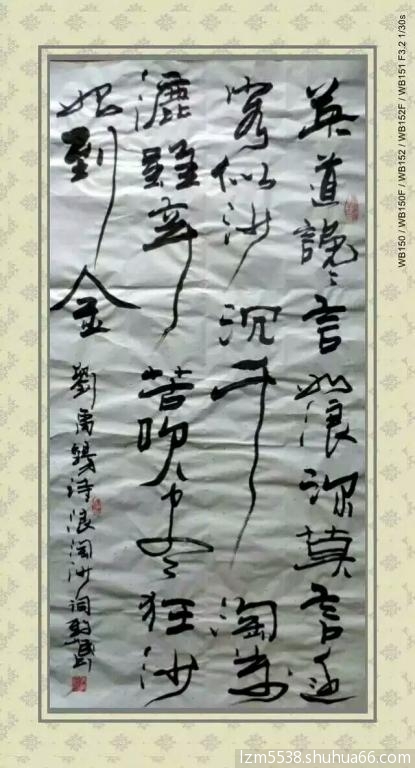 莫道讒言如浪深莫言迁
客似沙沉千淘万
漉雖辛苦吹尽狂沙
始到金
劉禹錫诗浪淘沙詞
WB150 / WB150F / WB152 / WB152F / WB151 F3.2 1/30s
lzm5538.shuhua66.com